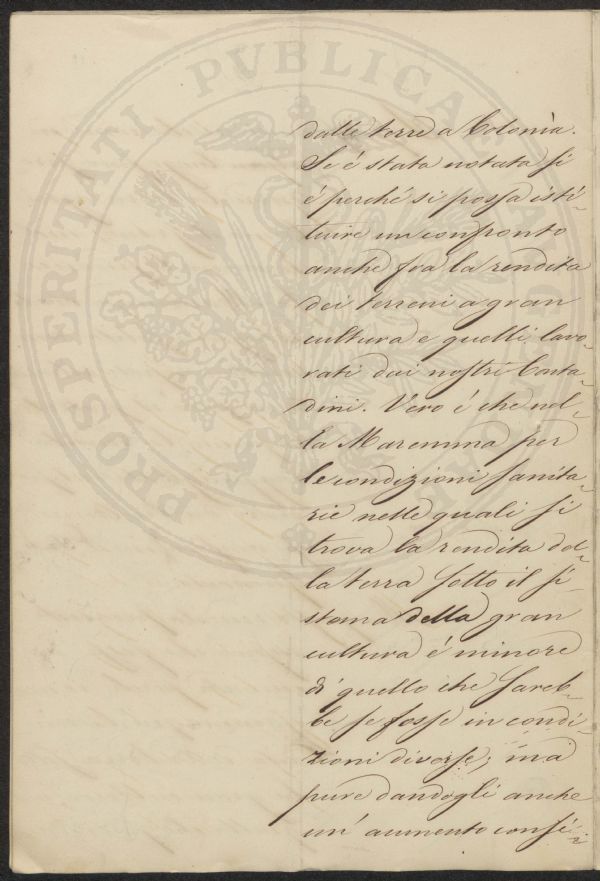 dalle terre a Colonìa.
Se é stata notata si
é perché si possa isti-
tuire un confronto
anche fra la rendita
dei terreni a gran
cultura e quelli lavo-
rati dai nostri Conta-
dini. Vero é che nel-
la Maremma per
le condizioni sanita-
rie nelle quali si
trova la rendita del-
la terra sotto il si-
stema della gran
cultura é minore
di quello che sareb-
be se fosse in condi-
zioni diverse; ma
pure dandogli anche
un' aumento consi-
PROSPERITATI PVBLICAE